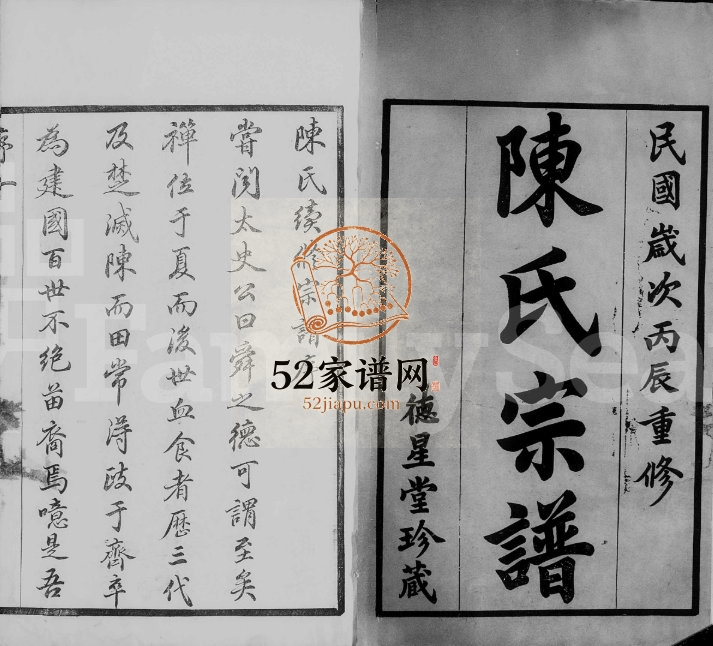 民國歲次丙辰重修
陳氏宗譜
德星堂珍藏
陳氏續修宗譜
嘗聞太史公曰舜之德可謂至矣
禪位于夏而後世血食者歷三代
及楚滅陳而田常得政于齊卒
為建國百世不絕苗裔焉噫是吾
序
一
52家谱网
52jiapu.com
FamilySea